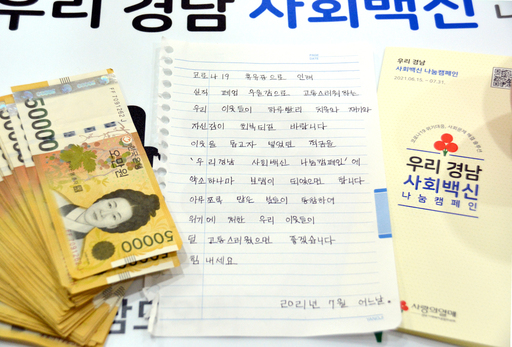 우리 경남 사회백신 나
50000
오만원
50000
코로나19 후유증으로 인해
실직 폐업 우울감으로 고통스러워하는
우리 이웃들이 하루빨리 치유와 재기와
자신감이 회복되길 바랍니다
이웃을 돕고자 넣었던 적금을
'우리경남 사회백신 나눔캠페인'에
액수나마 보탬이 되었으면 합니다
아무쪼록 많은 분들이 동참하여
위기에 처한 우리 이웃들이
덜 고통스러웠으면 좋겠습니다
힘내세요
2021년 7월 어느날
우리 경남
사회백신 나눔캠페인
2021.06.15. ~ 07.31.
우리 경남
사회백신
나눔캠페인
사랑의열매